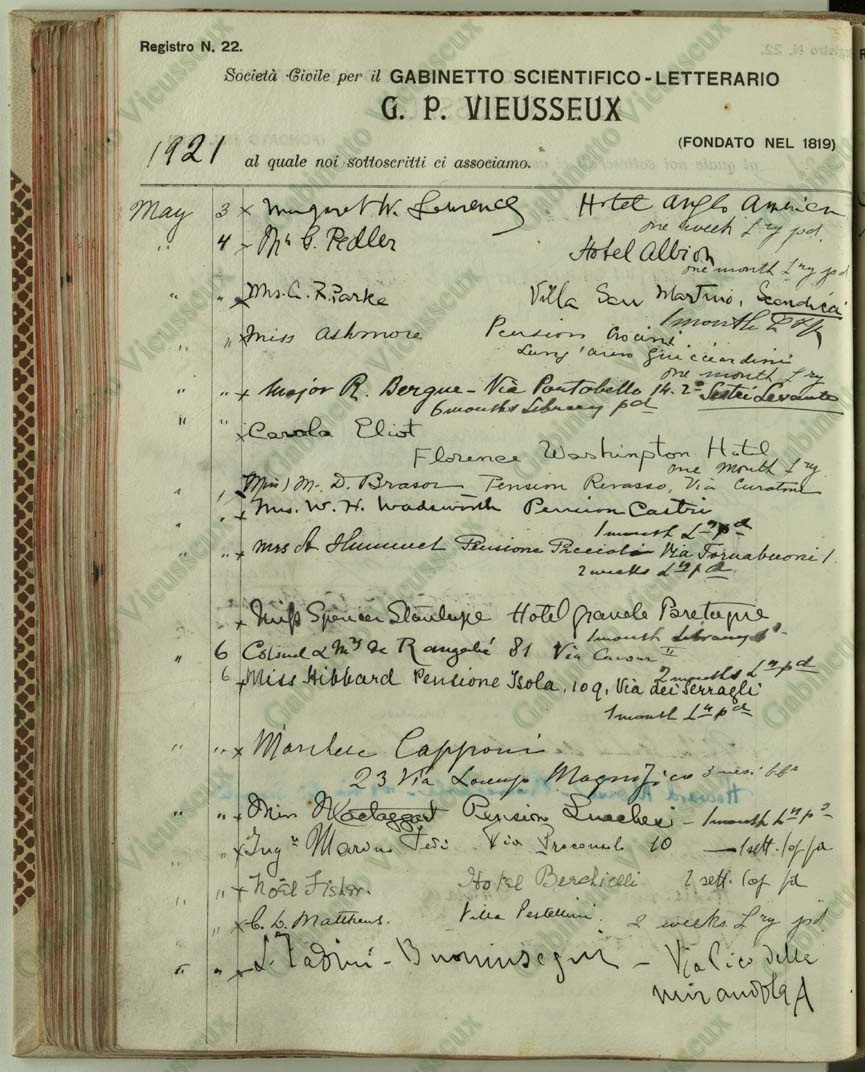 Registro N. 22.
Società Civile per il GABINETTO SCIENTIFICO-LETTERARIO
G. P. VIEUSSEUX
(FONDATO NEL 1819)
1921 al quale noi sottoscritti ci associamo.
May 3 x Margaret W. Lawrence Hotel Anglo American
one week Lry pd.
" 4 x Mrs G. Pedler Hotel Albion
one month Lry pd
" " x Mrs. A. F. Parke Villa San Martino, Scandicci
1 month
" " Miss Ashmore Pension Crocini
Lung'arno Guicciardini
one month Lry
" " x Major R. Bergne - Via Portobello 14. 2° Sestri Levante
6 months Library pd
" " x Carola Eliot
Florence Washington Hotel
one month Lry.
" D. Brason Pension Via Curtatone
" " Mrs. W. H. Wadsworth Pension Castri
1 month Lry pd
" " x Mrs A Hummel Pensione Piccioli Via Tornabuoni 1.
2 weeks Lry pd.
x Miss Spencer Stanhope Hotel Grande Bretagne
1 month Library
" 6 Colonel & Mrs de Rangabé 81 Via Cavour II
2 months Lry pd
6 x Miss Hibbard Pensione Isola, 109, Via dei Serragli
1 month Lry pd
" " x Marchese Capponi
23 Via Lorenzo Magnifico 3 mesi
" " x Miss Pension Lucchesi - 1 month Lry pd
" x Ingre Via Proconsolo 10 — 1 sett.
" " x Noël Fisher. Hotel Berchielli 2 sett.
" " x C. L. Matthews. Villa Pestellini. 2 weeks Lry pd.
" " x L. Tadini - Buoninsegni - Via Pico della
Mirandola
Gabinetto Vieusseux